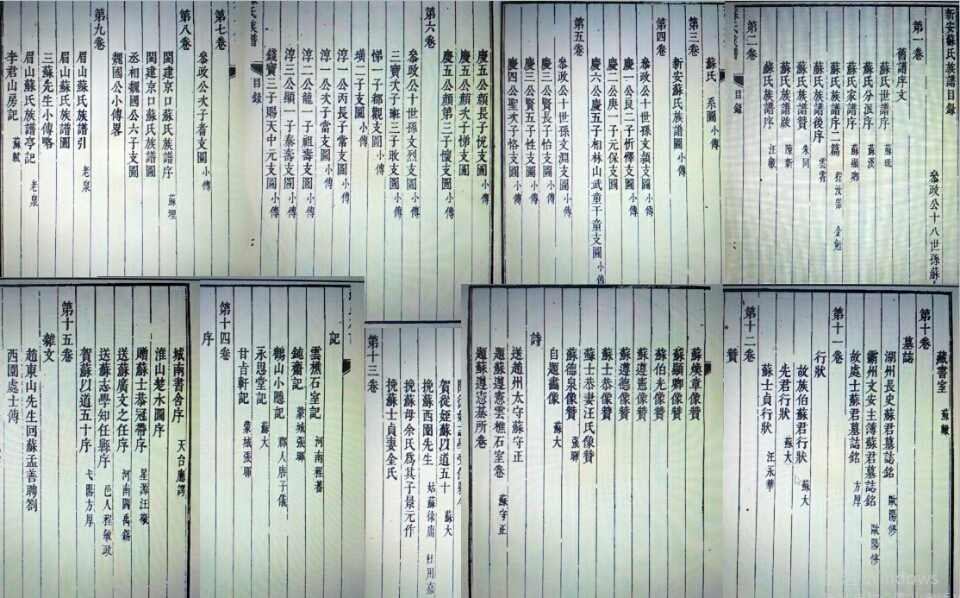 新安蘇氏族譜目錄
參政公十八世孫蘇
第一卷
舊譜序文
蘇氏世譜序 蘇
蘇氏分派序 蘇
蘇氏家譜序 蘇顯卿
蘇氏族譜序二篇 程汝器 金勉
蘇氏族譜後序
蘇氏族譜序 朱同
蘇氏族譜跋 陳新
蘇氏族譜序 汪叡
第二卷
蘇氏 系圖 小傳
第三卷
新安蘇氏族譜圖 小傳
第四卷
參政公十世孫文 支圖 小傳
慶一公良二子忻懌支圖 小傳
慶二公庚一子元保支圖
慶六公慶五子相林山武童干童支圖 小傳
第五卷
參政公十世孫文淵支圖 小傳
慶三公賢長子恰支圖 小傳
慶三公賢五子性支圖 小傳
慶四公聖次子恪支圖 小傳
慶五公顏長子悅支圖 小傳
慶五公顏次子悌支圖
慶五公顏第三子懷支圖 小傳
第六卷
參政公十世孫文烈支圖 小傳
三賓次子 三子敢支圖 小傳
悌一子都觀支圖 小傳
璜二子支圖 小傳
淳一公丙長子當支圖 小傳
淳一公 次子當支圖 小傳
淳二公龍一子祖壽支圖 小傳
淳三公顯一子泰壽支圖 小傳
錢賓三子賜天申元支圖 小傳
目錄
第七卷
參政公次子耆支圖 小傳
第八卷
閩建京口蘇氏族譜序 蘇理
閩建京口蘇氏族譜圖
丞相魏國公六子支圖
魏國公小傳畧
第九卷
眉山蘇氏族譜引 老泉
眉山蘇氏族譜圖
三蘇先生小傳略
眉山蘇氏族譜亭記 老泉
李君山房記 蘇軾
藏書室 蘇轍
第十卷
墓誌
湖州長史蘇君墓誌銘 歐陽修
霸州文安主薄蘇君墓誌銘 歐陽修
故處士蘇君墓誌銘 方厚
第十一卷
行狀
故族伯蘇君行狀 蘇大
先君行狀 蘇大
蘇士貞行狀 汪永華
第十二卷
贊
蘇煥章像贊
蘇顯卿像贊
蘇伯光像贊
蘇遵憲像贊
蘇遵德像贊
蘇士恭像贊
蘇士恭妻汪氏像贊
蘇德泉像贊 張驛
自題戴像 蘇大
詩
送趙州太守蘇守正
題蘇遵憲雲樵石室卷 蘇守正
題蘇遵憲墓所卷
賀從姪蘇以道五十 蘇大
挽蘇西園先生 姑蘇徐庸 杜用嘉
挽蘇母余氏爲其子景元作
挽蘇士貞妻金氏
第十三卷
記
雲樵石室記 河南程蕃
鈍齋記 蒙城張驛
鶴山小隱記 郡人唐于儀
永思堂記 蘇大
甘肯軒記 蒙城張驛
第十四卷
序
城南書舍序 天台應
淮山楚水圖序
贈蘇士恭冠帶序 星源汪
送蘇廣文之任序 河南閻禹錫
送蘇志學知任縣序 邑人程敏政
賀蘇以道五十序 弋陽方厚
第十五卷
雜文
趙東山先生回蘇孟善聘劄
西園處士傳